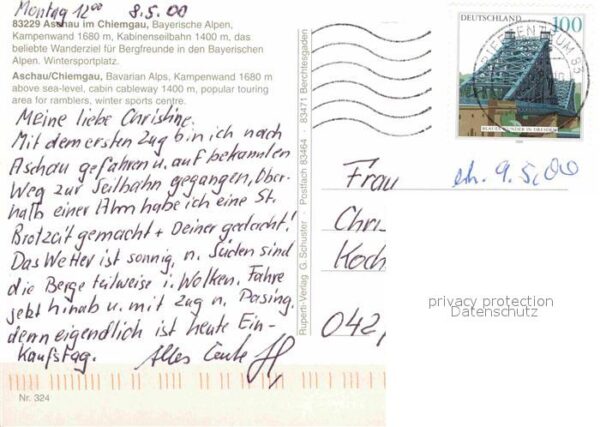 Montag 12⁰⁰ 8.5.00
83229 Aschau im Chiemgau, Bayerische Alpen,
Kampenwand 1680 m, Kabinenseilbahn 1400 m, das
beliebte Wanderziel für Bergfreunde in den Bayerischen
Alpen. Wintersportplatz.
Aschau/Chiemgau, Bavarian Alps, Kampenwand 1680 m
above sea-level, cabin cableway 1400 m, popular touring
area for ramblers, winter sports centre.
Meine liebe Christine.
Mit dem ersten Zug bin ich nach
Aschau gefahren u. auf bekannten
Weg zur Seilbahn gegangen, Ober-
halb einer Alm habe ich eine St.
Brotzeit gemacht + Deiner gedacht!
Das Wetter ist sonnig, n. Süden sind
die Berge teilweise i. Wolken. Fahre
jetzt hinab u. mit Zug n. Pasing,
denn eigendlich ist heute Ein-
kaufstag. Alles Liebe
Nr. 324
Ruperti-Verlag G. Schuster · Postfach 83464 · 83471 Berchtesgaden
DEUTSCHLAND 100
BRIEFZENTRUM 83
BLAUES WUNDER IN DRESDEN
Frau
erh. 9.5.00
Chri
Koch
042
privacy protection
Datenschutz